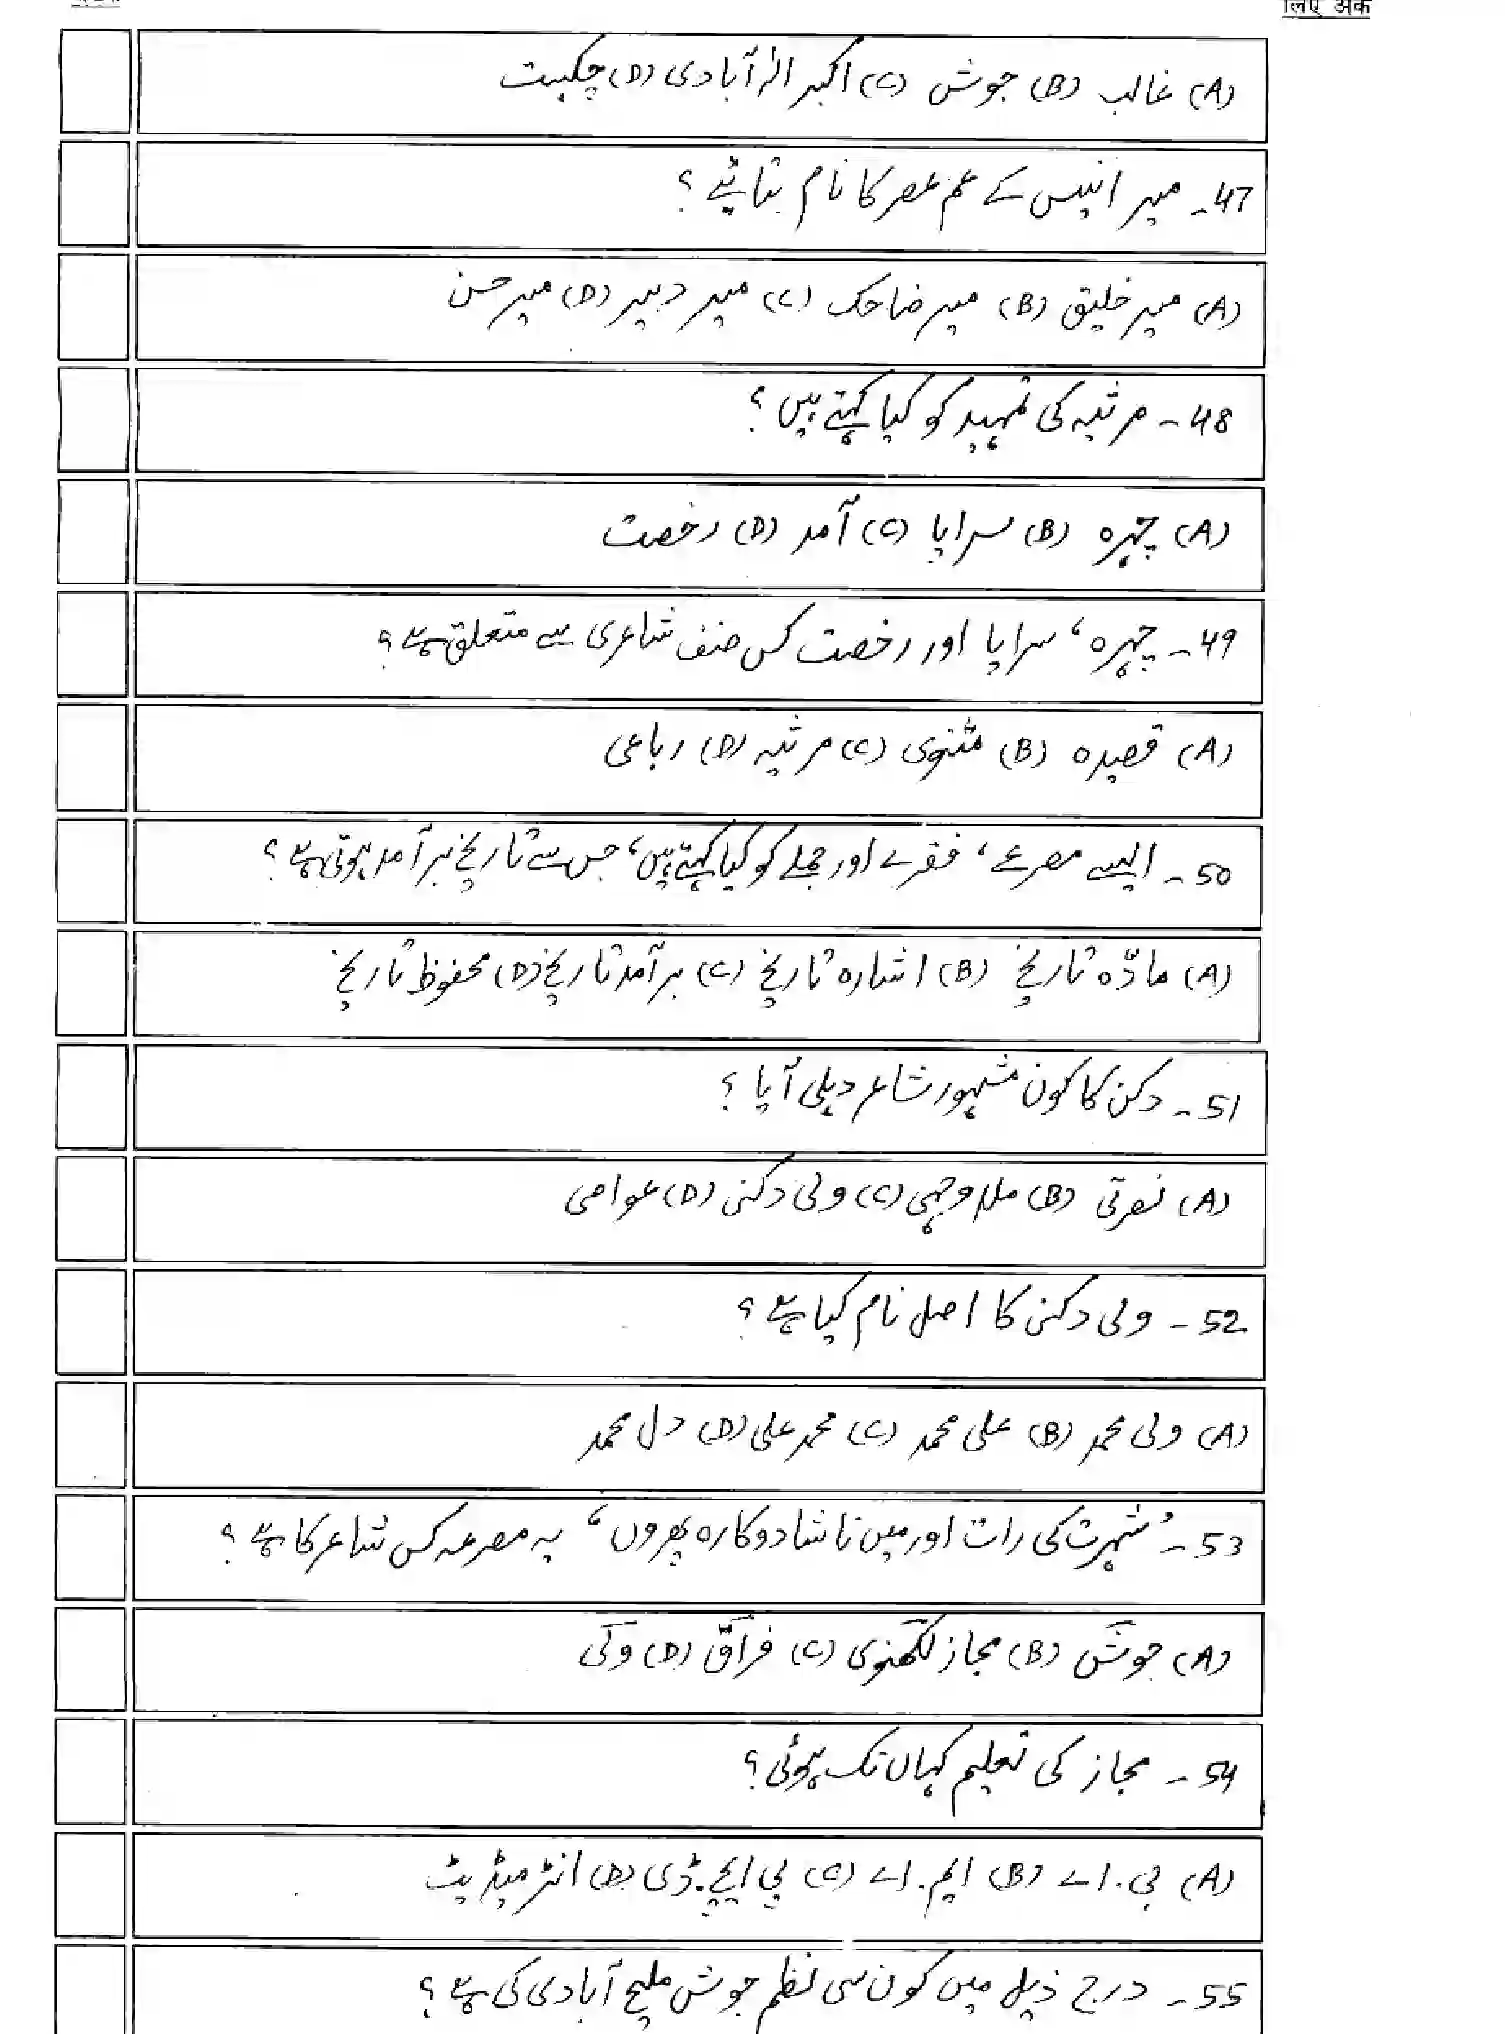 लिए अंक
(A) غالب (B) جوش (C) اکبر الٰہ آبادی (D) چکبست
47۔ میر انیس کے ہم عصر کا نام بتائیے؟
(A) میر خلیق (B) میر ضاحک (C) میر دبیر (D) میر حسن
48۔ مرثیہ کی تمہید کو کیا کہتے ہیں؟
(A) چہرہ (B) سراپا (C) آمد (D) رخصت
49۔ چہرہ، سراپا اور رخصت کس صنف شاعری سے متعلق ہے؟
(A) قصیدہ (B) مثنوی (C) مرثیہ (D) رباعی
50۔ ایسے مصرعے، فقرے اور جملے کو کیا کہتے ہیں، جس سے تاریخ برآمد ہوتی ہے؟
(A) مادّہ تاریخ (B) اشارہ تاریخ (C) برآمد تاریخ (D) محفوظ تاریخ
51۔ دکن کا کون مشہور شاعر دہلی آیا؟
(A) نصرتی (B) ملا وجہی (C) ولی دکنی (D) عواصی
52۔ ولی دکنی کا اصل نام کیا ہے؟
(A) ولی محمد (B) علی محمد (C) محمد علی (D) دل محمد
53۔ ’شہرت کی رات اور میں ناشاد و کارہ پھروں‘ یہ مصرعہ کس شاعر کا ہے؟
(A) جوشؔ (B) مجاز لکھنوی (C) فراقؔ (D) ولیؔ
54۔ مجاز کی تعلیم کہاں تک ہوئی؟
(A) بی.اے (B) ایم.اے (C) پی ایچ.ڈی (D) انٹر میڈیٹ
55۔ درج ذیل میں کون سی نظم جوش ملیح آبادی کی ہے؟